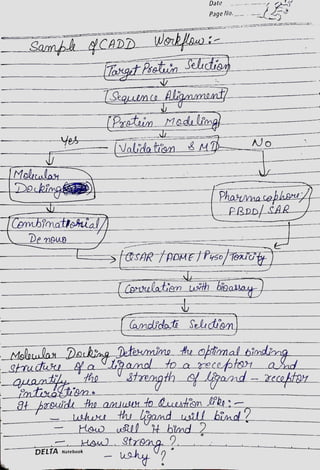 Date
Page No.
Sample of CADD Workflow:-
Target Protein Selection
Sequence Alignment
Protein Modeling
Yes
Validation & MD
No
Molecular
Docking
Pharmacophore/
FBDD/SAR
Combinatorial/
De novo
QSAR/ADME/P450/Toxicity
Correlation with bioassay
Candidate Selection
Molecular Docking Determine the optimal binding
structure of a ligand to a receptor and
quantify the strength of ligand - receptor
interaction.
It provide the answer to Question like:-
- where the ligand will bind?
- How will it bind?
- How Strong?
- Why?
DELTA Notebook